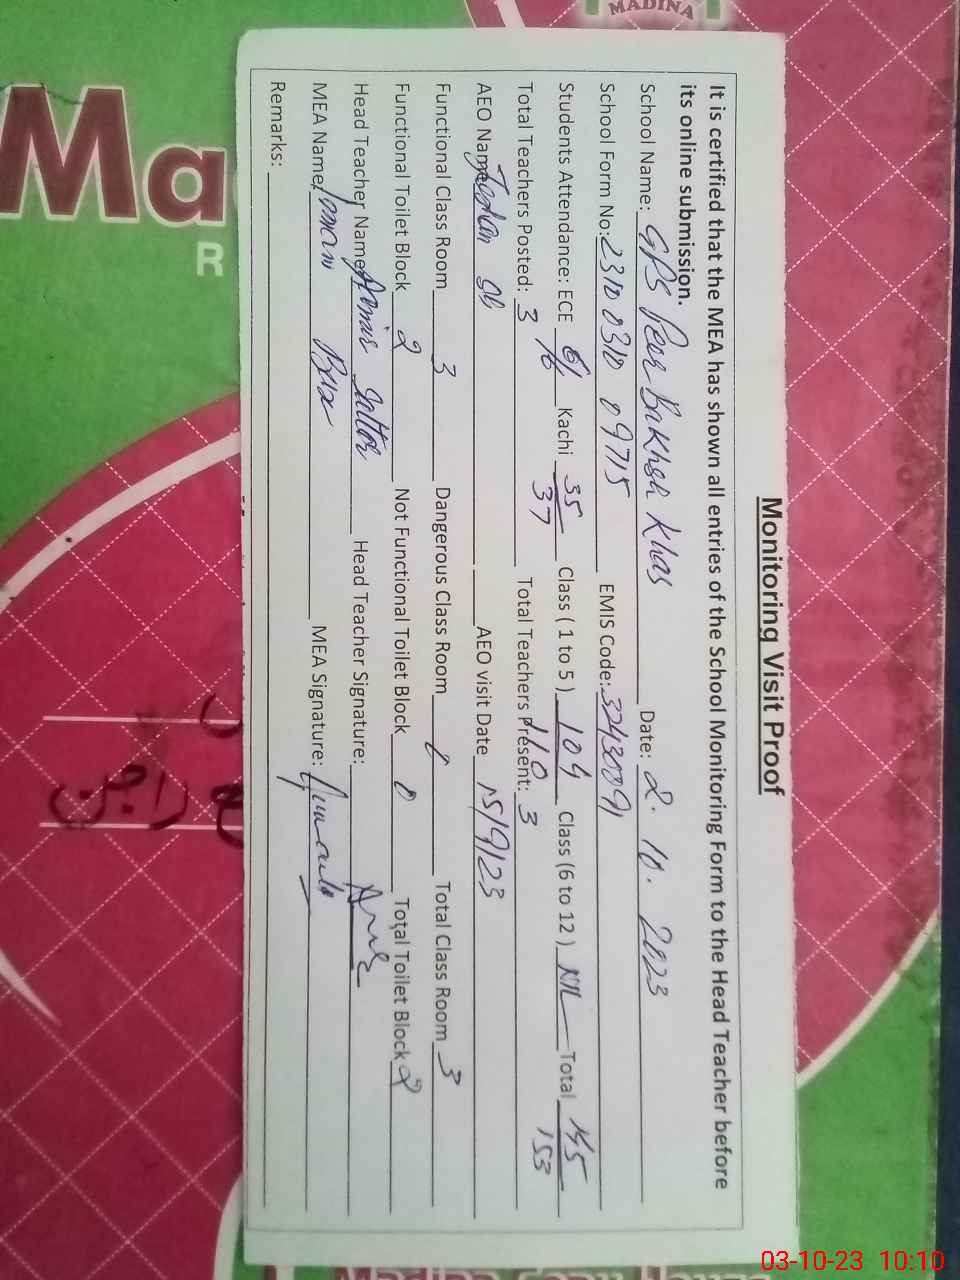 MADINA
Ma
R
Monitoring Visit Proof
It is certified that the MEA has shown all entries of the School Monitoring Form to the Head Teacher before
its online submission.
School Name: GPS Peer Bakhsh Khas Date: 2.10.2023
School Form No: 2310 0310 09715 EMIS Code: 32430091
Students Attendance: ECE Kachi 35 Class (1 to 5) 104 Class (6 to 12) NIL Total 145
6 37 110 153
Total Teachers Posted: 3 Total Teachers Present: 3
AEO Name AEO visit Date 15/9/23
Functional Class Room 3 Dangerous Class Room Total Class Room 3
Functional Toilet Block 2 Not Functional Toilet Block 0 Total Toilet Block 2
Head Teacher Name Aamir Sattar Head Teacher Signature:
MEA Name MEA Signature:
Remarks:
03-10-23 10:10